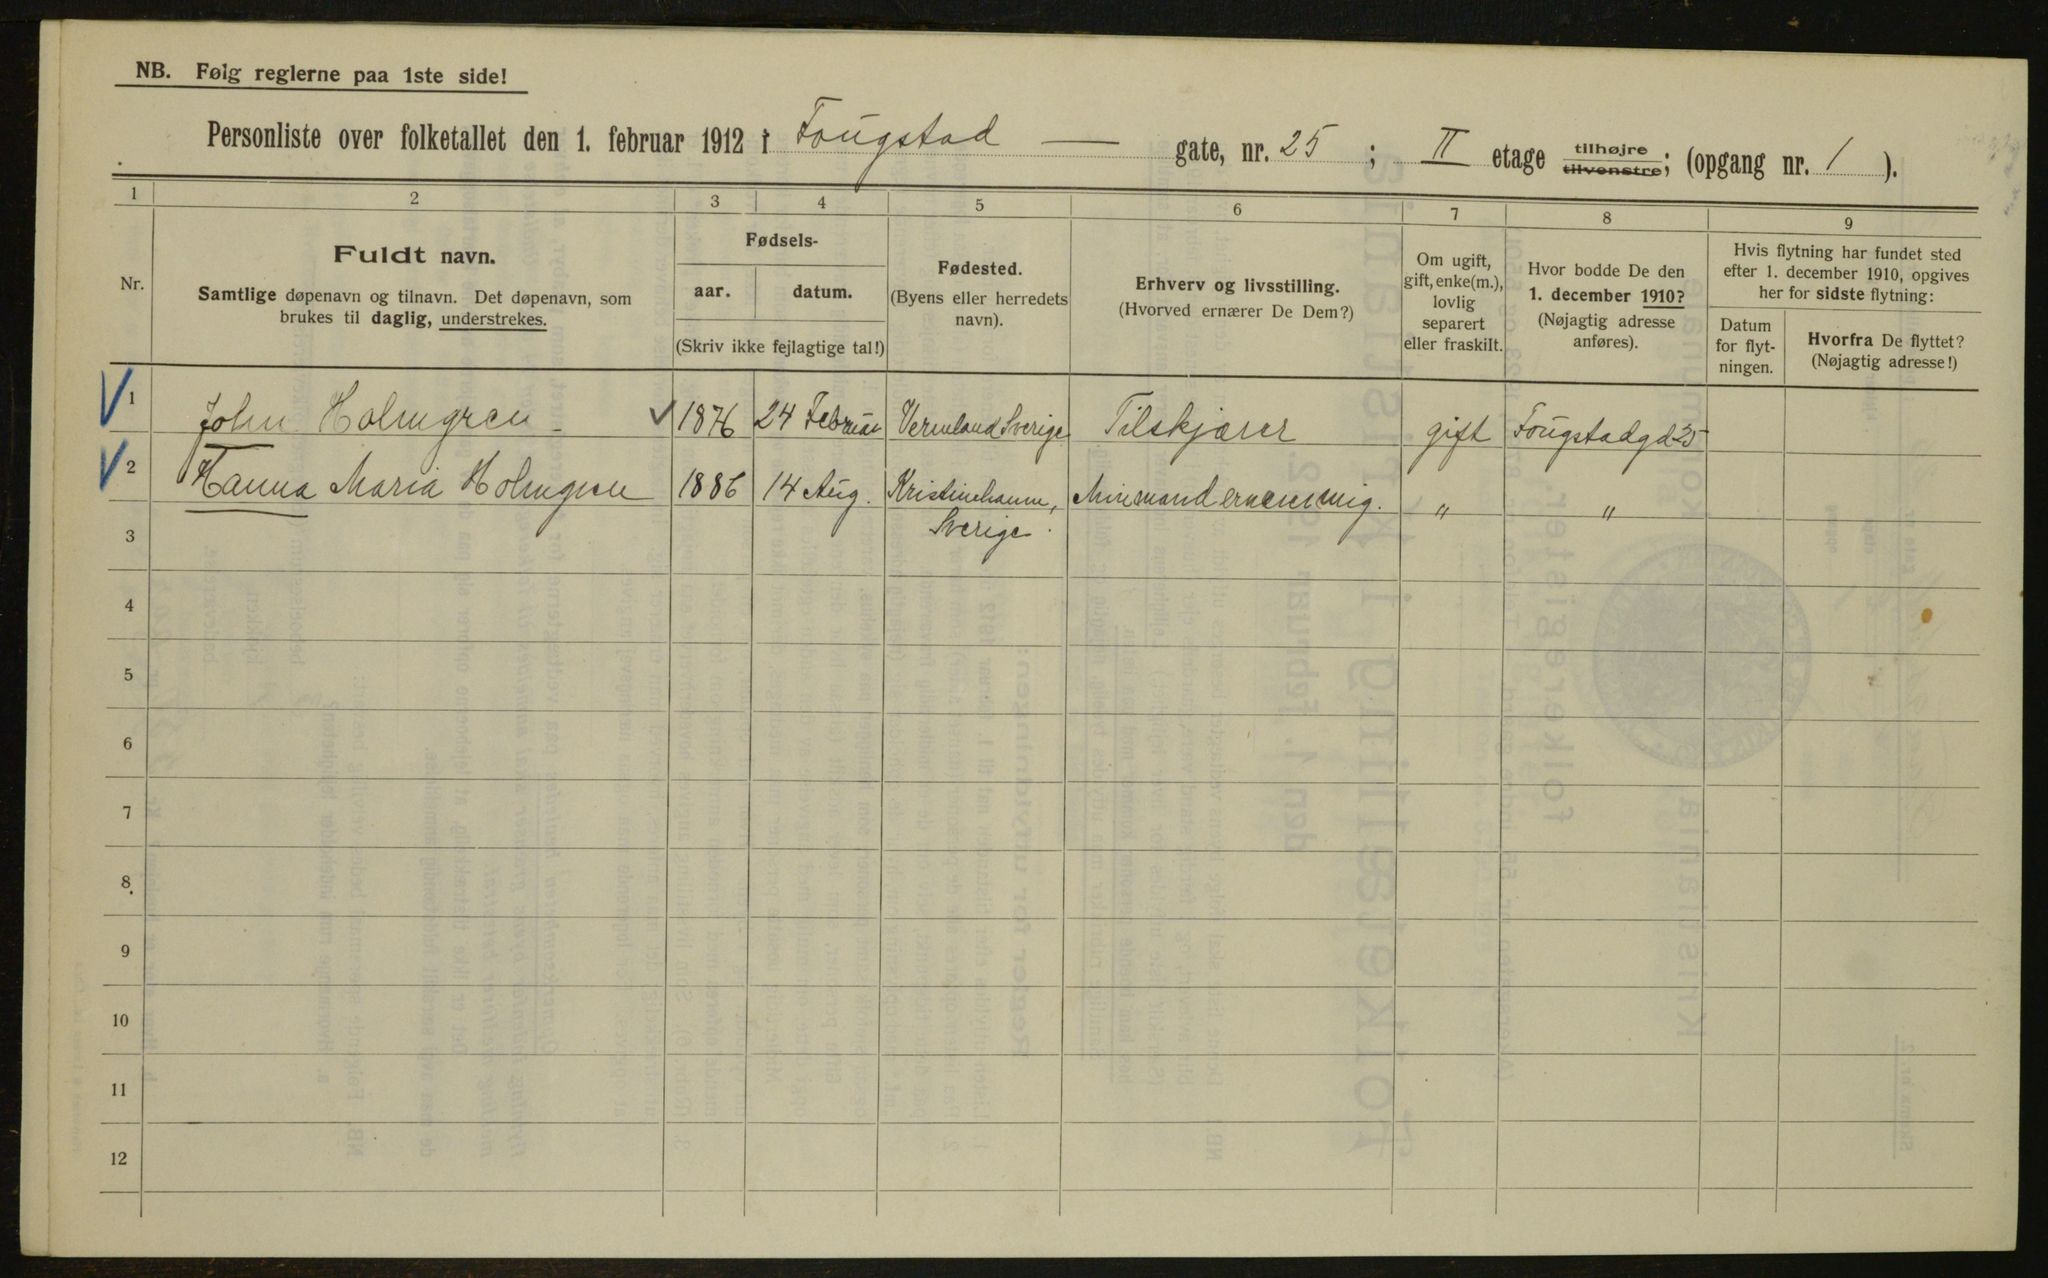 NB. Følg reglerne paa 1ste side!
Personliste over folketallet den 1. februar 1912 i Fougstad — gate, nr. 25 ; II etage tilhøjre tilvenstre; (opgang nr. 1 ).
1 2 3 4 5 6 7 8 9
Nr.
Fuldt navn.
Samtlige døpenavn og tilnavn. Det døpenavn, som
brukes til daglig, understrekes.
Fødsels-
aar. datum.
(Skriv ikke fejlagtige tal!)
Fødested.
(Byens eller herredets
navn).
Erhverv og livsstilling.
(Hvorved ernærer De Dem?)
Om ugift,
gift, enke(m.),
lovlig
separert
eller fraskilt.
Hvor bodde De den
1. december 1910?
(Nøjagtig adresse
anføres).
Hvis flytning har fundet sted
efter 1. december 1910, opgives
her for sidste flytning:
Datum
for flyt-
ningen.
Hvorfra De flyttet?
(Nøjagtig adresse!)
1 John Holmgren 1876 24 Februar Vermland Sverige Tilskjærer gift Fougstadgd 25
2 Hanna Maria Holmgren 1886 14 Aug. Kristinehamn, Min mand ernærer mig. " "
Sverige.
3
4
5
6
7
8
9
10
11
12